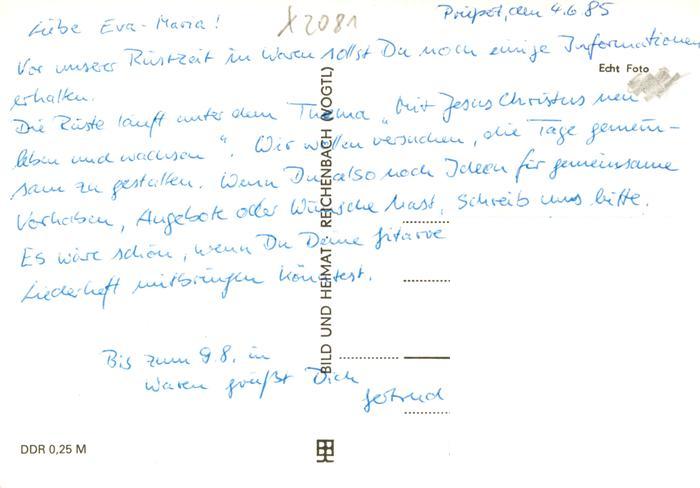 Priepert, den 4.6.85
X 2081
Liebe Eva-Maria!
Vor unserer Rüstzeit in Waren sollst Du noch einige Informationen
erhalten.
Echt Foto
Die Rüste läuft unter dem Thema „Mit Jesus Christus neu
leben und wachsen". Wir wollen versuchen, die Tage gemein-
sam zu gestalten. Wenn Du also noch Ideen für gemeinsame
Vorhaben, Angebote oder Wünsche hast, schreib uns bitte.
Es wäre schön, wenn Du Deine Gitarre
Liederheft mitbringen könntest.
Bis zum 9.8. in
Waren grüßt Dich
Gertrud
BILD UND HEIMAT · REICHENBACH (VOGTL)
DDR 0,25 M